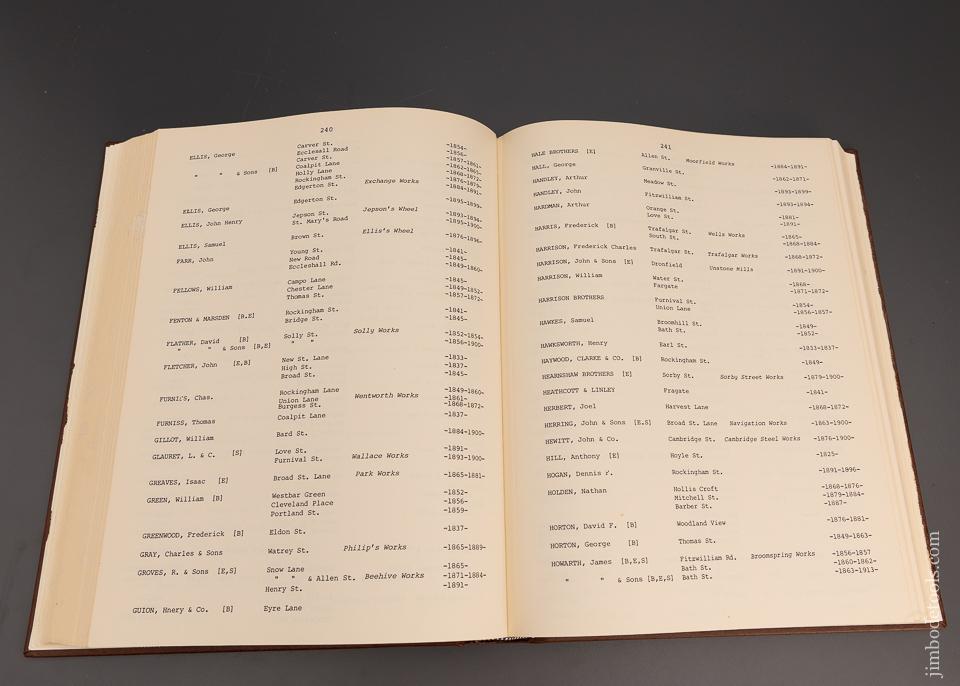 240
ELLIS, George Carver St. -1854-
Ecclesall Road -1856-
Carver St. -1857-1861-
" " & Sons [B] Coalpit Lane -1862-1865-
Holly Lane -1868-1872-
Rockingham St. Exchange Works -1876-1879-
Edgerton St. -1884-1891-
ELLIS, George Edgerton St. -1895-1899-
ELLIS, John Henry Jepson St. Jepson's Wheel -1893-1894-
St. Mary's Road -1895-1900-
ELLIS, Samuel Brown St. Ellis's Wheel -1876-1896-
FARR, John Young St. -1841-
New Road -1845-
Eccleshall Rd. -1849-1860-
FELLOWS, William Campo Lane -1845-
Chester Lane -1849-1852-
Thomas St. -1857-1872-
FENTON & MARSDEN [B,E] Rockingham St. -1841-
Bridge St. -1845-
FLATHER, David [B] Solly St. Solly Works -1852-1854-
" " & Sons [B,E] " " -1856-1900-
FLETCHER, John [E,B] New St. Lane -1833-
High St. -1837-
Broad St. -1845-
FURNISS, Chas. Rockingham Lane -1849-1860-
Union Lane Wentworth Works -1861-
Burgess St. -1868-1872-
FURNISS, Thomas Coalpit Lane -1837-
GILLOT, William Bard St. -1884-1900-
GLAURET, L. & C. [S] Love St. -1891-
Furnival St. Wallace Works -1893-1900-
GREAVES, Isaac [E] Broad St. Lane Park Works -1865-1881-
GREEN, William [B] Westbar Green -1852-
Cleveland Place -1856-
Portland St. -1859-
GREENWOOD, Frederick [B] Eldon St. -1837-
GRAY, Charles & Sons Watrey St. Philip's Works -1865-1889-
GROVES, R. & Sons [E,S] Snow Lane -1865-
" " & Allen St. Beehive Works -1871-1884-
Henry St. -1891-
GUION, Hnery & Co. [B] Eyre Lane
241
HALE BROTHERS [E] Allen St. Moorfield Works -1884-1891-
HALL, George Granville St. -1862-1871-
HANDLEY, Arthur Meadow St. -1893-1899-
HANDLEY, John Fitzwilliam St. -1893-1894-
HARDMAN, Arthur Orange St. -1881-
Love St. -1891-
HARRIS, Frederick [B] Trafalgar St. -1865-
South St. Wells Works -1868-1884-
HARRISON, Frederick Charles Trafalgar St. Trafalgar Works -1868-1872-
HARRISON, John & Sons [E] Dronfield Unstone Mills -1891-1900-
HARRISON, William Water St. -1868-
Fargate -1871-1872-
HARRISON BROTHERS Furnival St. -1854-
Union Lane -1856-1857-
HAWKES, Samuel Broomhill St. -1849-
Bath St. -1852-
HAWKSWORTH, Henry Earl St. -1833-1837-
HAYWOOD, CLARKE & CO. [B] Rockingham St. -1849-
HEARNSHAW BROTHERS [E] Sorby St. Sorby Street Works -1879-1900-
HEATHCOTT & LINLEY Fragate -1841-
HERBERT, Joel Harvest Lane -1868-1872-
HERRING, John & Sons [E,S] Broad St. Lane Navigation Works -1863-1900-
HEWITT, John & Co. Cambridge St. Cambridge Steel Works -1876-1900-
HILL, Anthony [E] Hoyle St. -1825-
HOGAN, Dennis F. Rockingham St. -1891-1896-
HOLDEN, Nathan Hollis Croft -1868-1876-
Mitchell St. -1879-1884-
Barber St. -1887-
HORTON, David F. [B] Woodland View -1876-1881-
HORTON, George [B] Thomas St. -1849-1863-
HOWARTH, James [B,E,S] Fitzwilliam Rd. Broomspring Works -1856-1857
Bath St. -1860-1862-
" " & Sons [B,E,S] Bath St. -1863-1913-
jimbodetools.com